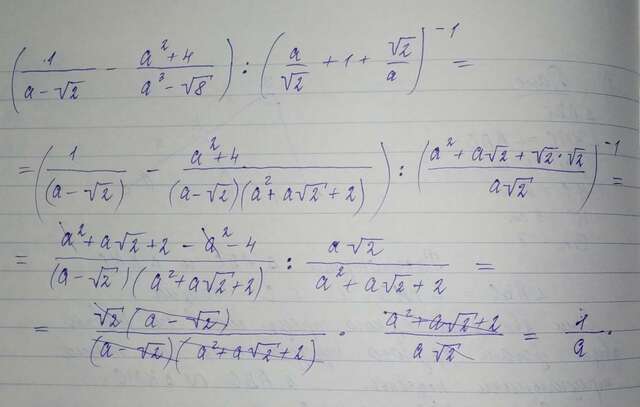 (1/(a-√2) - (a²+4)/(a³-√8)) : (a/√2 + 1 + √2/a)⁻¹ =
= (1/(a-√2) - (a²+4)/((a-√2)(a²+a√2+2))) : ((a²+a√2+√2·√2)/(a√2))⁻¹ =
= (a²+a√2+2-a²-4)/((a-√2)(a²+a√2+2)) : (a√2)/(a²+a√2+2) =
= (√2(a-√2))/((a-√2)(a²+a√2+2)) · (a²+a√2+2)/(a√2) = 1/a.